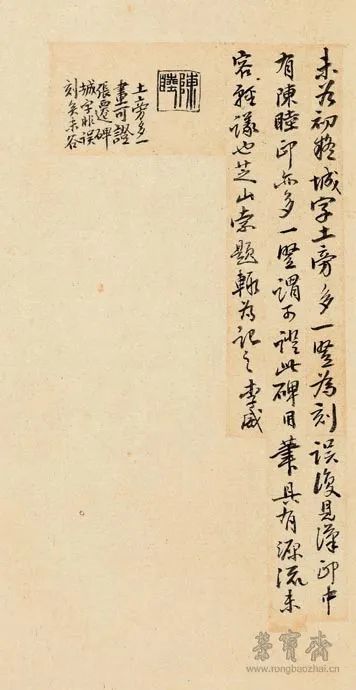 未谷初疑城字土旁多一竪為刻誤復見漢印中
有陳睦印亦多一竪謂可證此碑用筆具有源流未
容輕議也芝山索題輒為記之李威
陳睦
土旁多一
畫可證
張遷碑
城字非誤
刻矣未谷
榮寶齋
www.rongbaozhai.cn